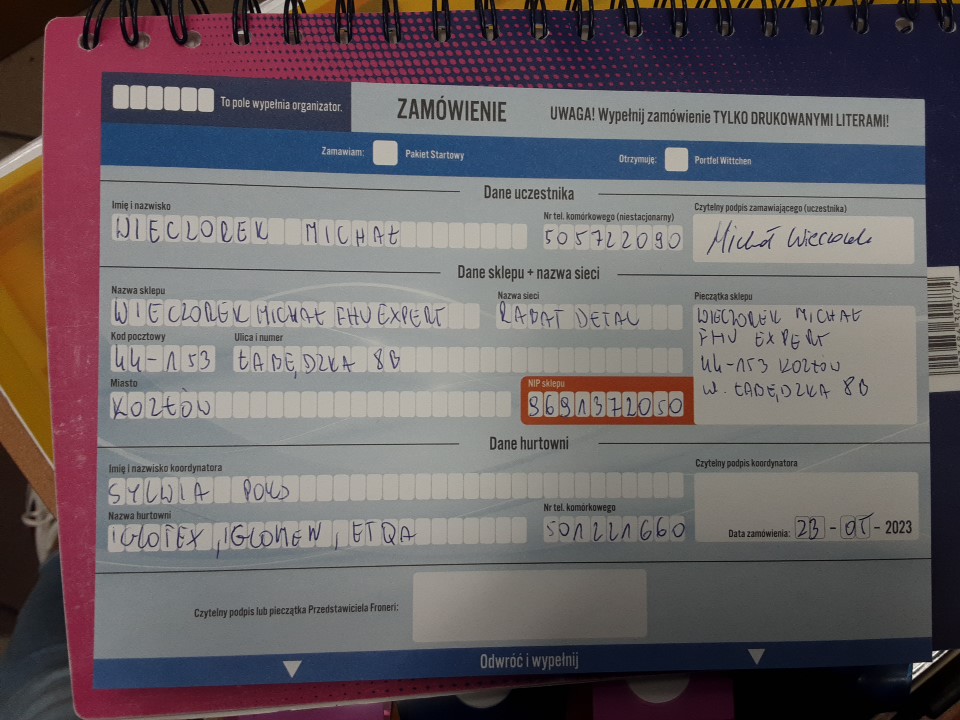 To pole wypełnia organizator.
ZAMÓWIENIE
UWAGA! Wypełnij zamówienie TYLKO DRUKOWANYMI LITERAMI!
Zamawiam: Pakiet Startowy
Otrzymuję: Portfel Wittchen
Dane uczestnika
Imię i nazwisko
WIECZOREK MICHAŁ
Nr tel. komórkowego (niestacjonarny)
505722090
Czytelny podpis zamawiającego (uczestnika)
Michał Wieczorek
Dane sklepu + nazwa sieci
Nazwa sklepu
WIECZOREK MICHAŁ FHU EXPERT
Nazwa sieci
RABAT DETAL
Pieczątka sklepu
WIECZOREK MICHAŁ
FHU EXPERT
44-153 KOZŁÓW
ul. ŁABĘDZKA 8B
Kod pocztowy
44-153
Ulica i numer
ŁABĘDZKA 8B
Miasto
KOZŁÓW
NIP sklepu
9691372050
Dane hurtowni
Imię i nazwisko koordynatora
SYLWIA
Nazwa hurtowni
IGLOTEX, IGLOMEN, ETQA
Nr tel. komórkowego
501221660
Czytelny podpis koordynatora
Data zamówienia: 23 - 05 - 2023
Czytelny podpis lub pieczątka Przedstawiciela Froneri:
Odwróć i wypełnij